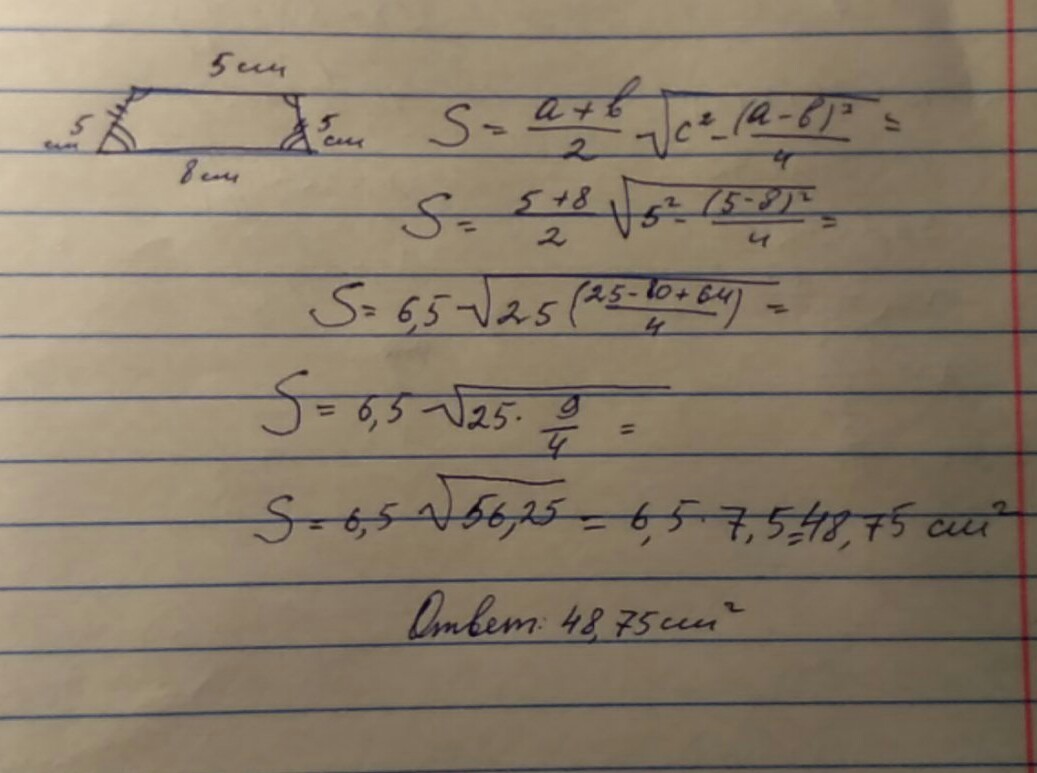 5 см
5 см
5 см
8 см
S = (a + b)/2 √(c² - (a - b)²/4) =
S = (5 + 8)/2 √(5² - (5 - 8)²/4) =
S = 6,5 √(25 ((25 - 80 + 64)/4)) =
S = 6,5 √(25 · 9/4) =
S = 6,5 √56,25 = 6,5 · 7,5 = 48,75 см²
Ответ: 48,75 см²